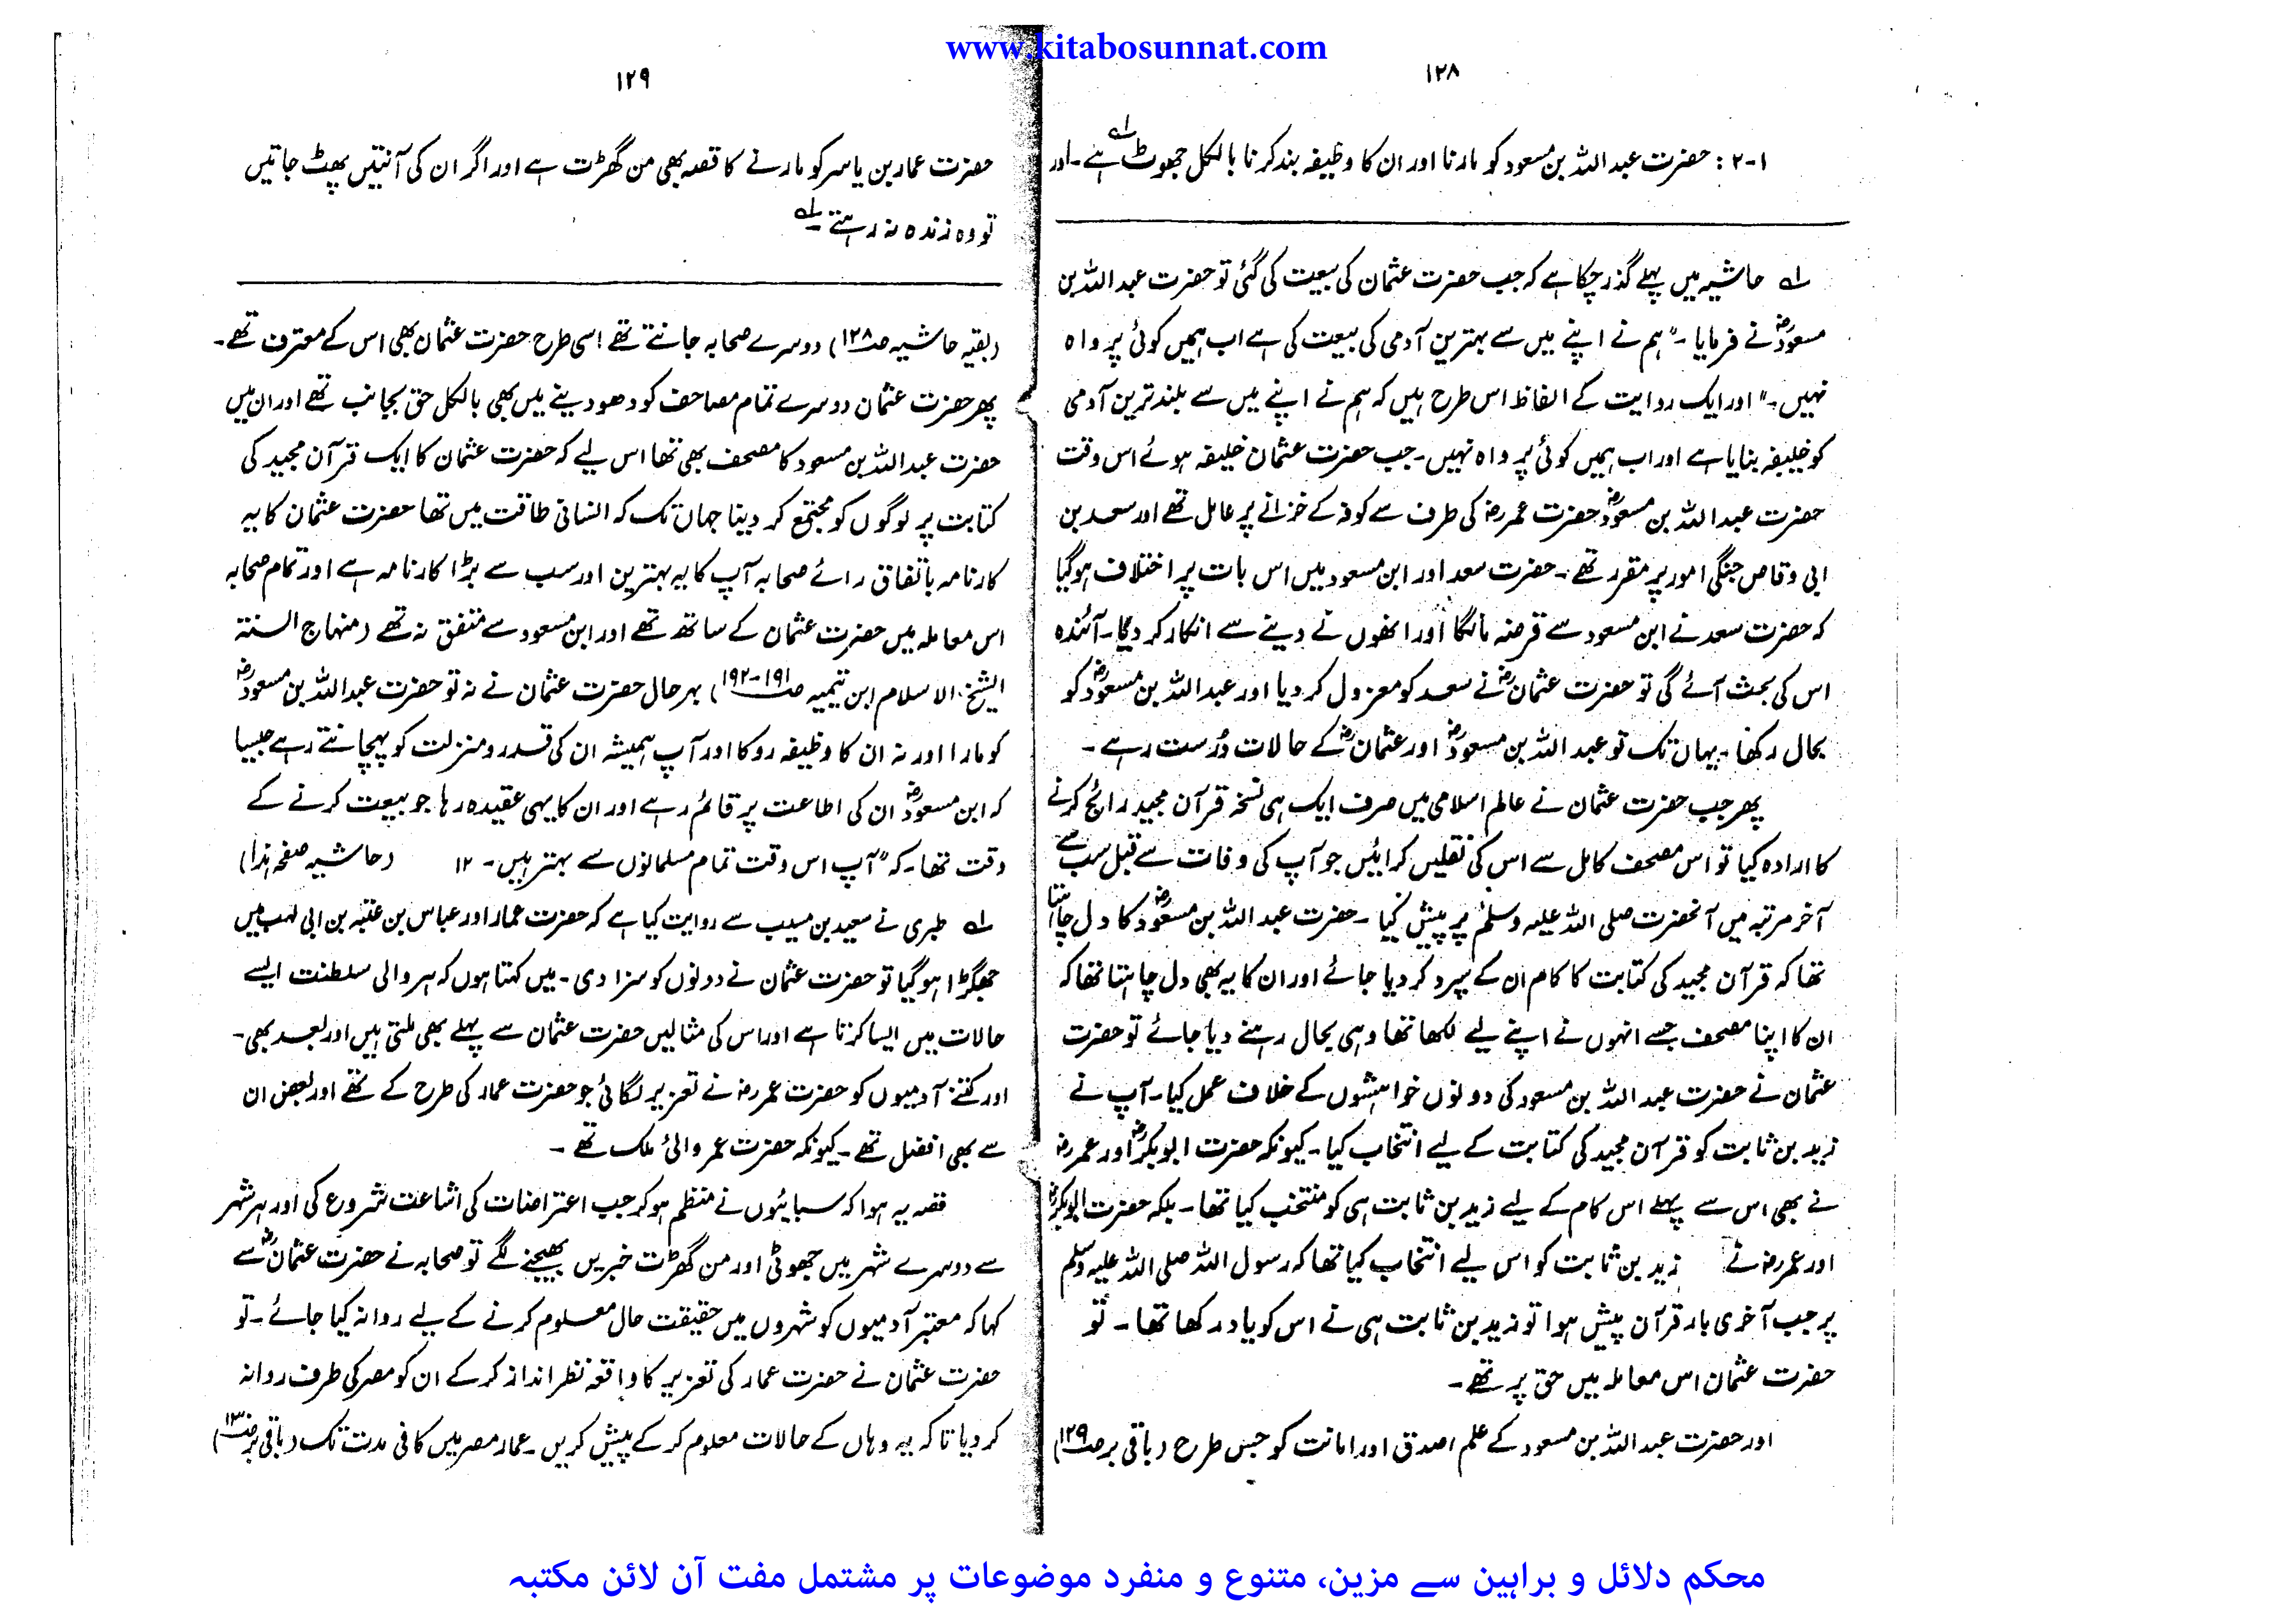 www.kitabosunnat.com
۱۲۸
۱-۲: حضرت عبد اللہ بن مسعود کو مارنا اور ان کا وظیفہ بند کرنا بالکل جھوٹ ہے ۔ اور
لے حاشیہ میں پہلے گذر چکا ہے کہ جب حضرت عثمان کی بیعت کی گئی تو حضرت عبد اللہ بن
مسعودؓ نے فرمایا ۔ "ہم نے اپنے میں سے بہترین آدمی کی بیعت کی ہے اب ہمیں کوئی پرواہ
نہیں ۔" اور ایک روایت کے الفاظ اس طرح ہیں کہ ہم نے اپنے میں سے بلند ترین آدمی
کو خلیفہ بنایا ہے اور اب ہمیں کوئی پرواہ نہیں ۔ جب حضرت عثمان خلیفہ ہوئے اس وقت
حضرت عبد اللہ بن مسعودؓ حضرت عمرؓ کی طرف سے کوفہ کے خزانے پر عامل تھے اور سعد بن
ابی وقاص جنگی امور پر مقرر تھے ۔ حضرت سعد اور ابن مسعود میں اس بات پر اختلاف ہوگیا
کہ حضرت سعد نے ابن مسعود سے قرضہ مانگا اور انھوں نے دینے سے انکار کر دیا ۔ آئندہ
اس کی بحث آئے گی تو حضرت عثمانؓ نے سعد کو معزول کر دیا اور عبد اللہ بن مسعودؓ کو
بحال رکھا ۔ یہاں تک تو عبد اللہ بن مسعودؓ اور عثمانؓ کے حالات درست رہے ۔
پھر جب حضرت عثمان نے عالم اسلامی میں صرف ایک ہی نسخہ قرآن مجید رائج کرنے
کا ارادہ کیا تو اس مصحف کامل سے اس کی نقلیں کرائیں جو آپ کی وفات سے قبل سب سے
آخر مرتبہ میں آنحضرت صلی اللہ علیہ وسلم پر پیش کیا ۔ حضرت عبد اللہ بن مسعودؓ کا دل چاہتا
تھا کہ قرآن مجید کی کتابت کا کام ان کے سپرد کر دیا جائے اور ان کا یہ بھی دل چاہتا تھا کہ
ان کا اپنا مصحف جسے انہوں نے اپنے لیے لکھا تھا وہی بحال رہنے دیا جائے تو حضرت
عثمان نے حضرت عبد اللہ بن مسعود کی دونوں خواہشوں کے خلاف عمل کیا ۔ آپ نے
زید بن ثابت کو قرآن مجید کی کتابت کے لیے انتخاب کیا ۔ کیونکہ حضرت ابوبکرؓ اور عمرؓ
نے بھی اس سے پہلے اس کام کے لیے زید بن ثابت ہی کو منتخب کیا تھا ۔ بلکہ حضرت ابوبکرؓ
اور عمرؓ نے زید بن ثابت کو اس لیے انتخاب کیا تھا کہ رسول اللہ صلی اللہ علیہ وسلم
پر جب آخری بار قرآن پیش ہوا تو زید بن ثابت ہی نے اس کو یاد رکھا تھا ۔ تو
حضرت عثمان اس معاملہ میں حق پر تھے ۔
اور حضرت عبد اللہ بن مسعود کے علم اصدق اور امانت کو جس طرح (باقی بر صـ۱۲۹)
۱۲۹
حضرت عمار بن یاسر کو مارنے کا قصہ بھی من گھڑت ہے اور اگر ان کی آنتیں پھٹ جاتیں
تو وہ زندہ نہ رہتے ۔لے
(بقیہ حاشیہ صـ۱۲۸) دوسرے صحابہ جانتے تھے اسی طرح حضرت عثمان بھی اس کے معترف تھے ۔
پھر حضرت عثمان دوسرے تمام مصاحف کو دھو دینے میں بھی بالکل حق بجانب تھے اور ان میں
حضرت عبد اللہ بن مسعود کا مصحف بھی تھا اس لیے کہ حضرت عثمان کا ایک قرآن مجید کی
کتابت پر لوگوں کو مجتمع کر دینا جہاں تک کہ انسانی طاقت میں تھا حضرت عثمان کا یہ
کارنامہ باتفاق رائے صحابہ آپ کا یہ بہترین اور سب سے بڑا کارنامہ ہے اور تمام صحابہ
اس معاملہ میں حضرت عثمان کے ساتھ تھے اور ابن مسعود سے متفق نہ تھے (منہاج السنۃ
الشیخ الاسلام ابن تیمیہ صـ۱۹۱-۱۹۲) بہر حال حضرت عثمان نے نہ تو حضرت عبد اللہ بن مسعودؓ
کو مارا اور نہ ان کا وظیفہ روکا اور آپ ہمیشہ ان کی قدر و منزلت کو پہچانتے رہے جیسا
کہ ابن مسعودؓ ان کی اطاعت پر قائم رہے اور ان کا یہی عقیدہ رہا جو بیعت کرنے کے
وقت تھا ۔ کہ "آپ اس وقت تمام مسلمانوں سے بہتر ہیں ۔ ۱۲ (حاشیہ صفحہ ہٰذا)
لے طبری نے سعید بن مسیب سے روایت کیا ہے کہ حضرت عمار اور عباس بن عتبہ بن ابی لہب میں
جھگڑا ہوگیا تو حضرت عثمان نے دونوں کو سزا دی ۔ میں کہتا ہوں کہ ہر والی سلطنت ایسے
حالات میں ایسا کرتا ہے اور اس کی مثالیں حضرت عثمان سے پہلے بھی ملتی ہیں اور بعد بھی ۔
اور کتنے آدمیوں کو حضرت عمرؓ نے تعزیر لگائی جو حضرت عمار کی طرح کے تھے اور بعض ان
سے بھی افضل تھے ۔ کیونکہ حضرت عمر والئ ملک تھے ۔
قصہ یہ ہوا کہ سبائیوں نے منظم ہو کر جب اعتراضات کی اشاعت شروع کی اور ہر شہر
سے دوسرے شہر میں جھوٹی اور من گھڑت خبریں بھیجنے لگے تو صحابہ نے حضرت عثمانؓ سے
کہا کہ معتبر آدمیوں کو شہروں میں حقیقت حال معلوم کرنے کے لیے روانہ کیا جائے ۔ تو
حضرت عثمان نے حضرت عمار کی تعزیر کا واقعہ نظر انداز کر کے ان کو مصر کی طرف روانہ
کر دیا تا کہ یہ وہاں کے حالات معلوم کر کے پیش کریں ۔ عمار مصر میں کافی مدت تک (باقی بر صـ۱۳۰)
محکم دلائل و براہین سے مزین، متنوع و منفرد موضوعات پر مشتمل مفت آن لائن مکتبہ